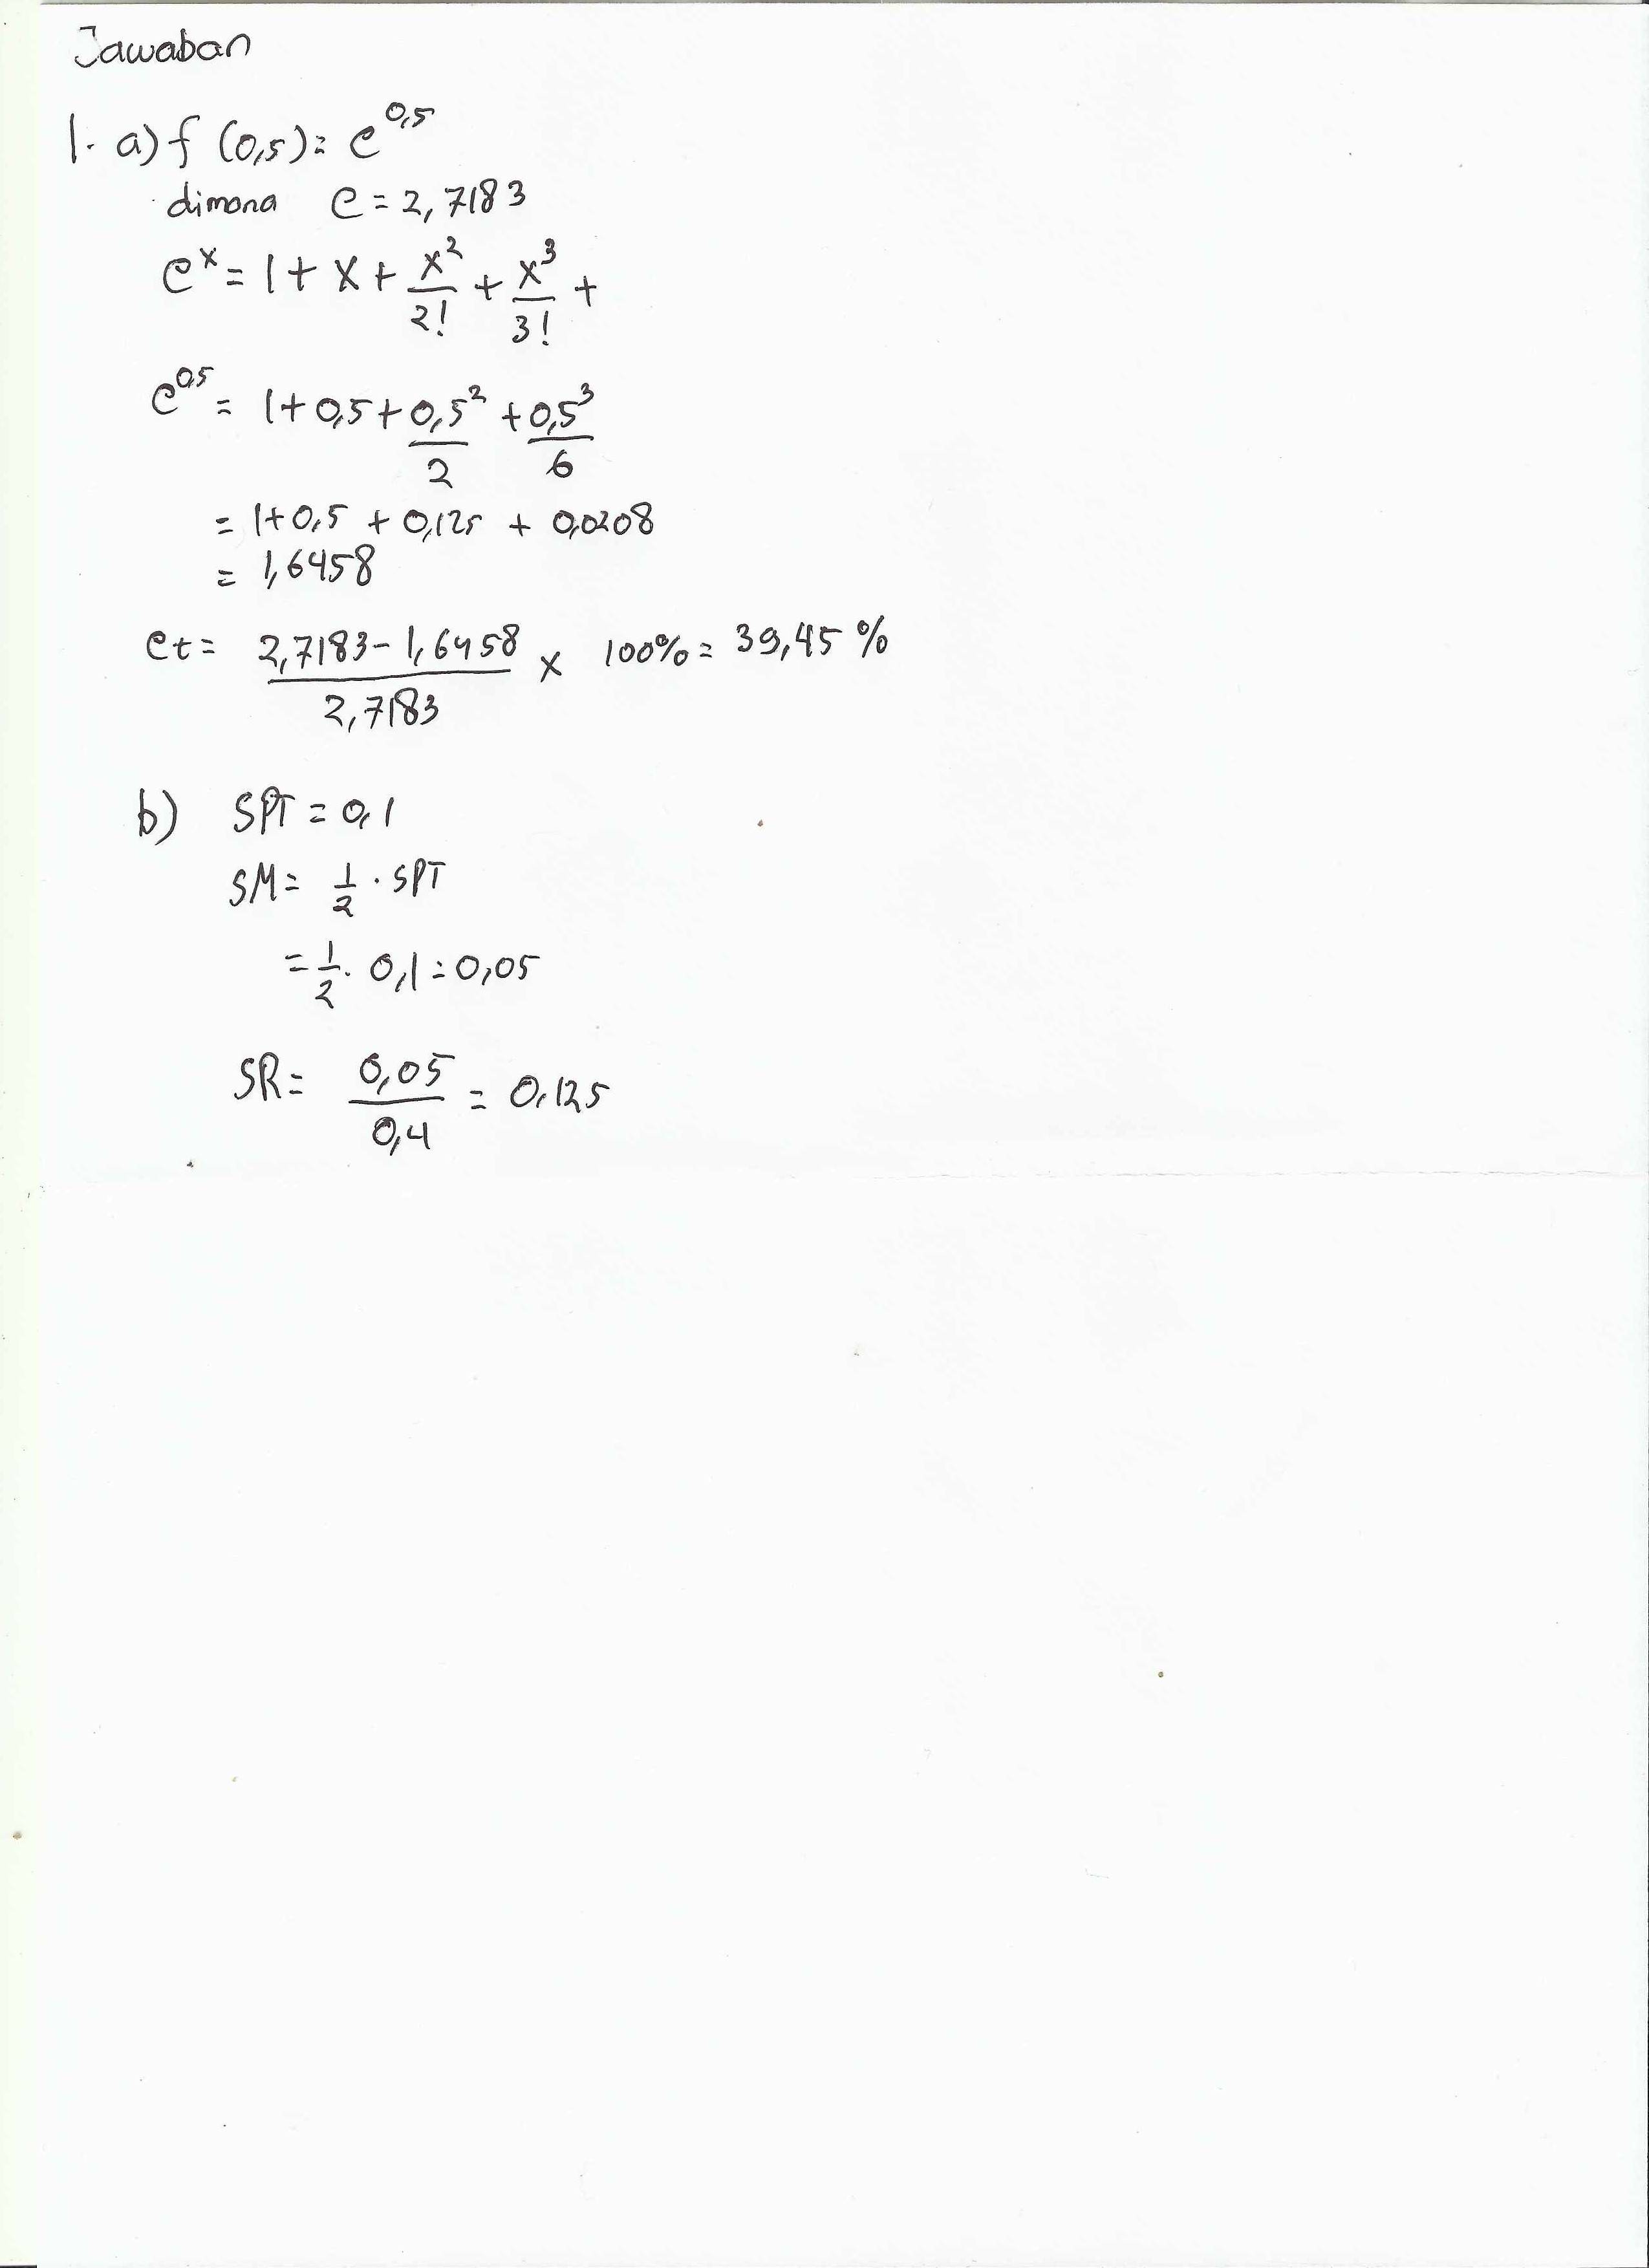 Jawaban
1. a) f (0,5) = e^0,5
dimana e = 2,7183
e^x = 1 + x + x^2/2! + x^3/3! +
e^0,5 = 1 + 0,5 + 0,5^2/2 + 0,5^3/6
= 1 + 0,5 + 0,125 + 0,0208
= 1,6458
et = (2,7183 - 1,6458)/2,7183 x 100% = 39,45 %
b) SPT = 0,1
SM = 1/2 . SPT
= 1/2 . 0,1 = 0,05
SR = 0,05/0,4 = 0,125